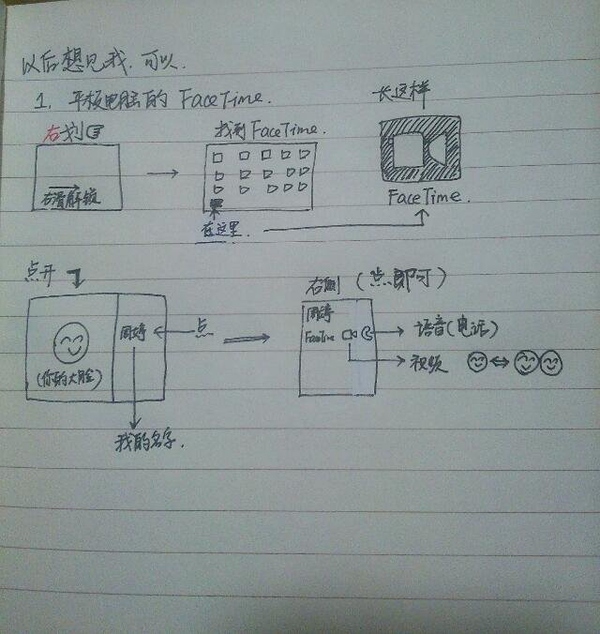 以后想见我,可以.
1. 平板电脑的 FaceTime.
右划
找到 FaceTime.
长这样
右滑解锁
FaceTime.
在这里.
点开
右侧 (点即可)
周婷
点
周婷
FaceTime
语音(电话)
视频
(你的大脸)
我的名字.